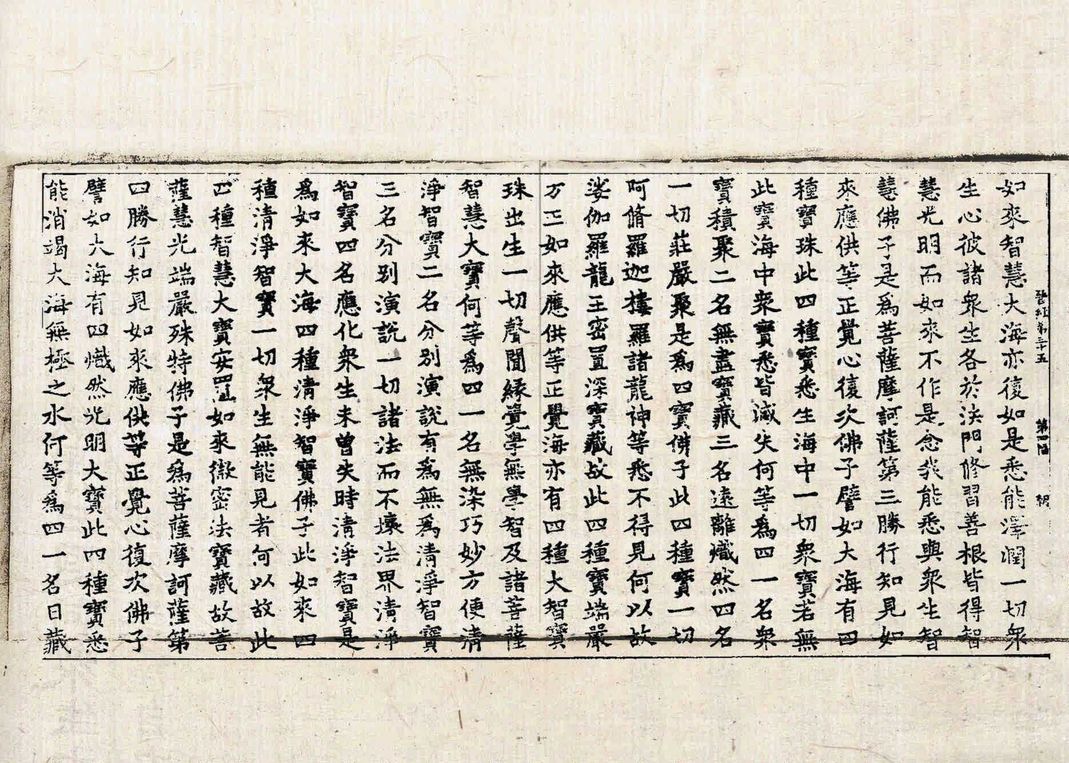 如來智慧大海亦復如是悉能澤潤一切衆
生心彼諸衆生各於法門修習善根皆得智
慧光明而如來不作是念我能悉與衆生智
慧佛子是爲菩薩摩訶薩第三勝行知見如
來應供等正覺心復次佛子譬如大海有四
種寶珠此四種寶悉生海中一切衆寶若無
此寶海中衆寶悉皆滅失何等爲四一名衆
寶積聚二名無盡寶藏三名遠離熾然四名
一切莊嚴聚是爲四寶佛子此四種寶一切
阿脩羅迦樓羅諸龍神等悉不得見何以故
娑伽羅龍王密置深寶藏故此四種寶端嚴
方正如來應供等正覺海亦有四種大智寶
珠出生一切聲聞緣覺學無學智及諸菩薩
智慧大寶何等爲四一名無染巧妙方便清
淨智寶二名分別演說有爲無爲清淨智寶
三名分別演說一切諸法而不壞法界清淨
智寶四名應化衆生未曾失時清淨智寶是
爲如來大海四種清淨智寶佛子此如來四
種清淨智寶一切衆生無能見者何以故此
四種智慧大寶安置如來微密法寶藏故菩
薩慧光端嚴殊特佛子是爲菩薩摩訶薩第
四勝行知見如來應供等正覺心復次佛子
譬如大海有四熾然光明大寶此四種寶悉
能消竭大海無極之水何等爲四一名日藏